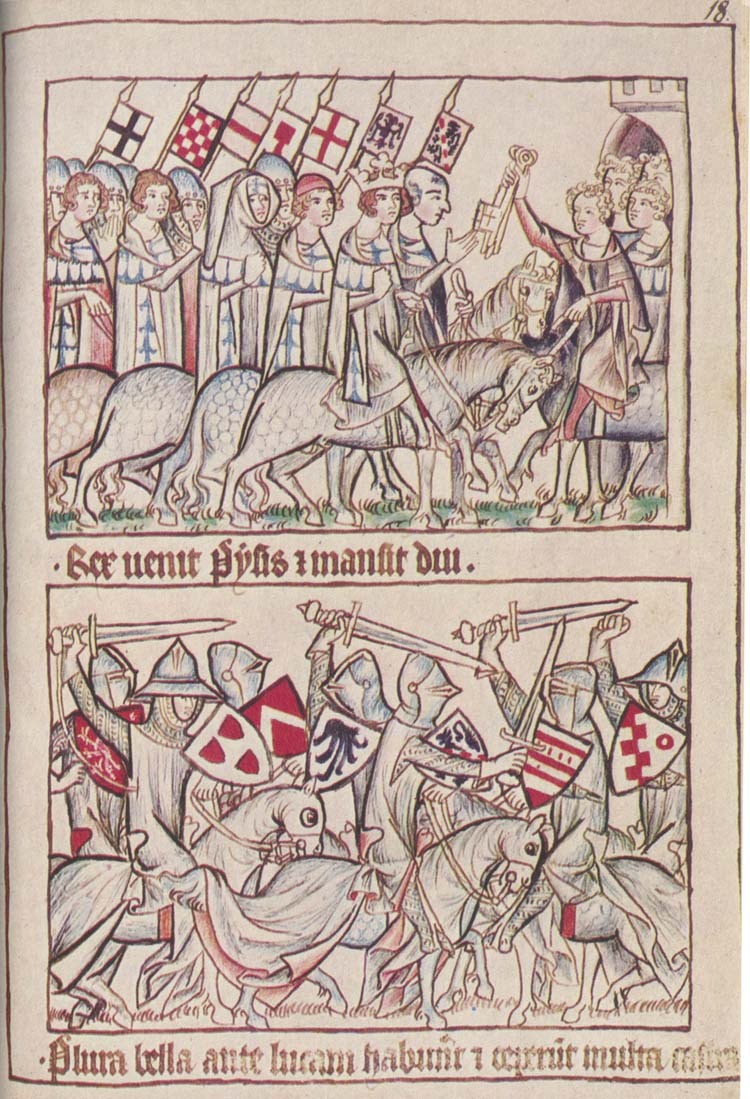 18.
· Rex uenit Pysis ⁊ mansit diu .
· Plura bella ante lucam habuer̄t ⁊ ceperūt multa castra